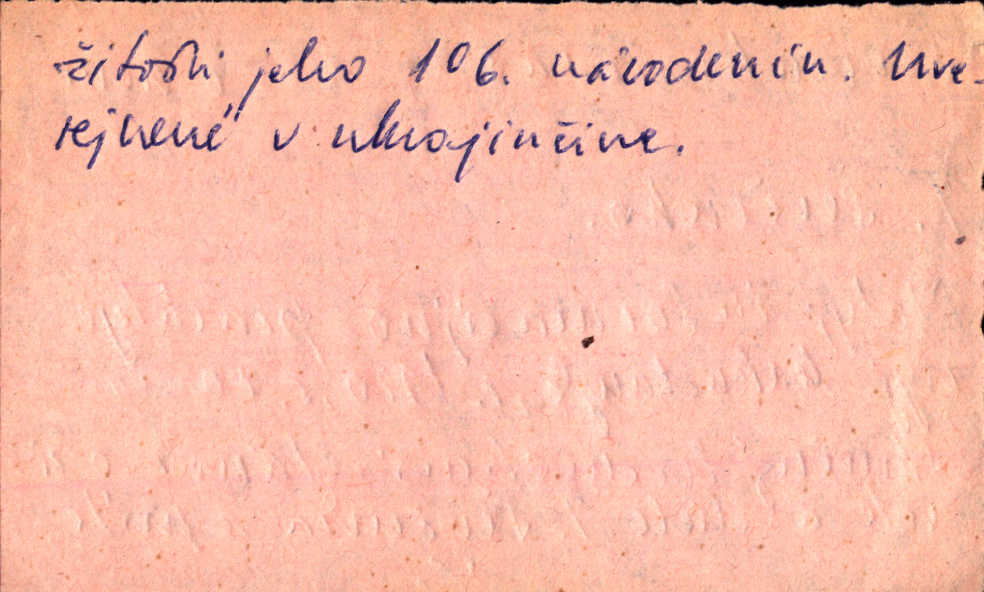 žitosti jeho 106. narodenín. Uve-
rejnené v ukrajinčine.